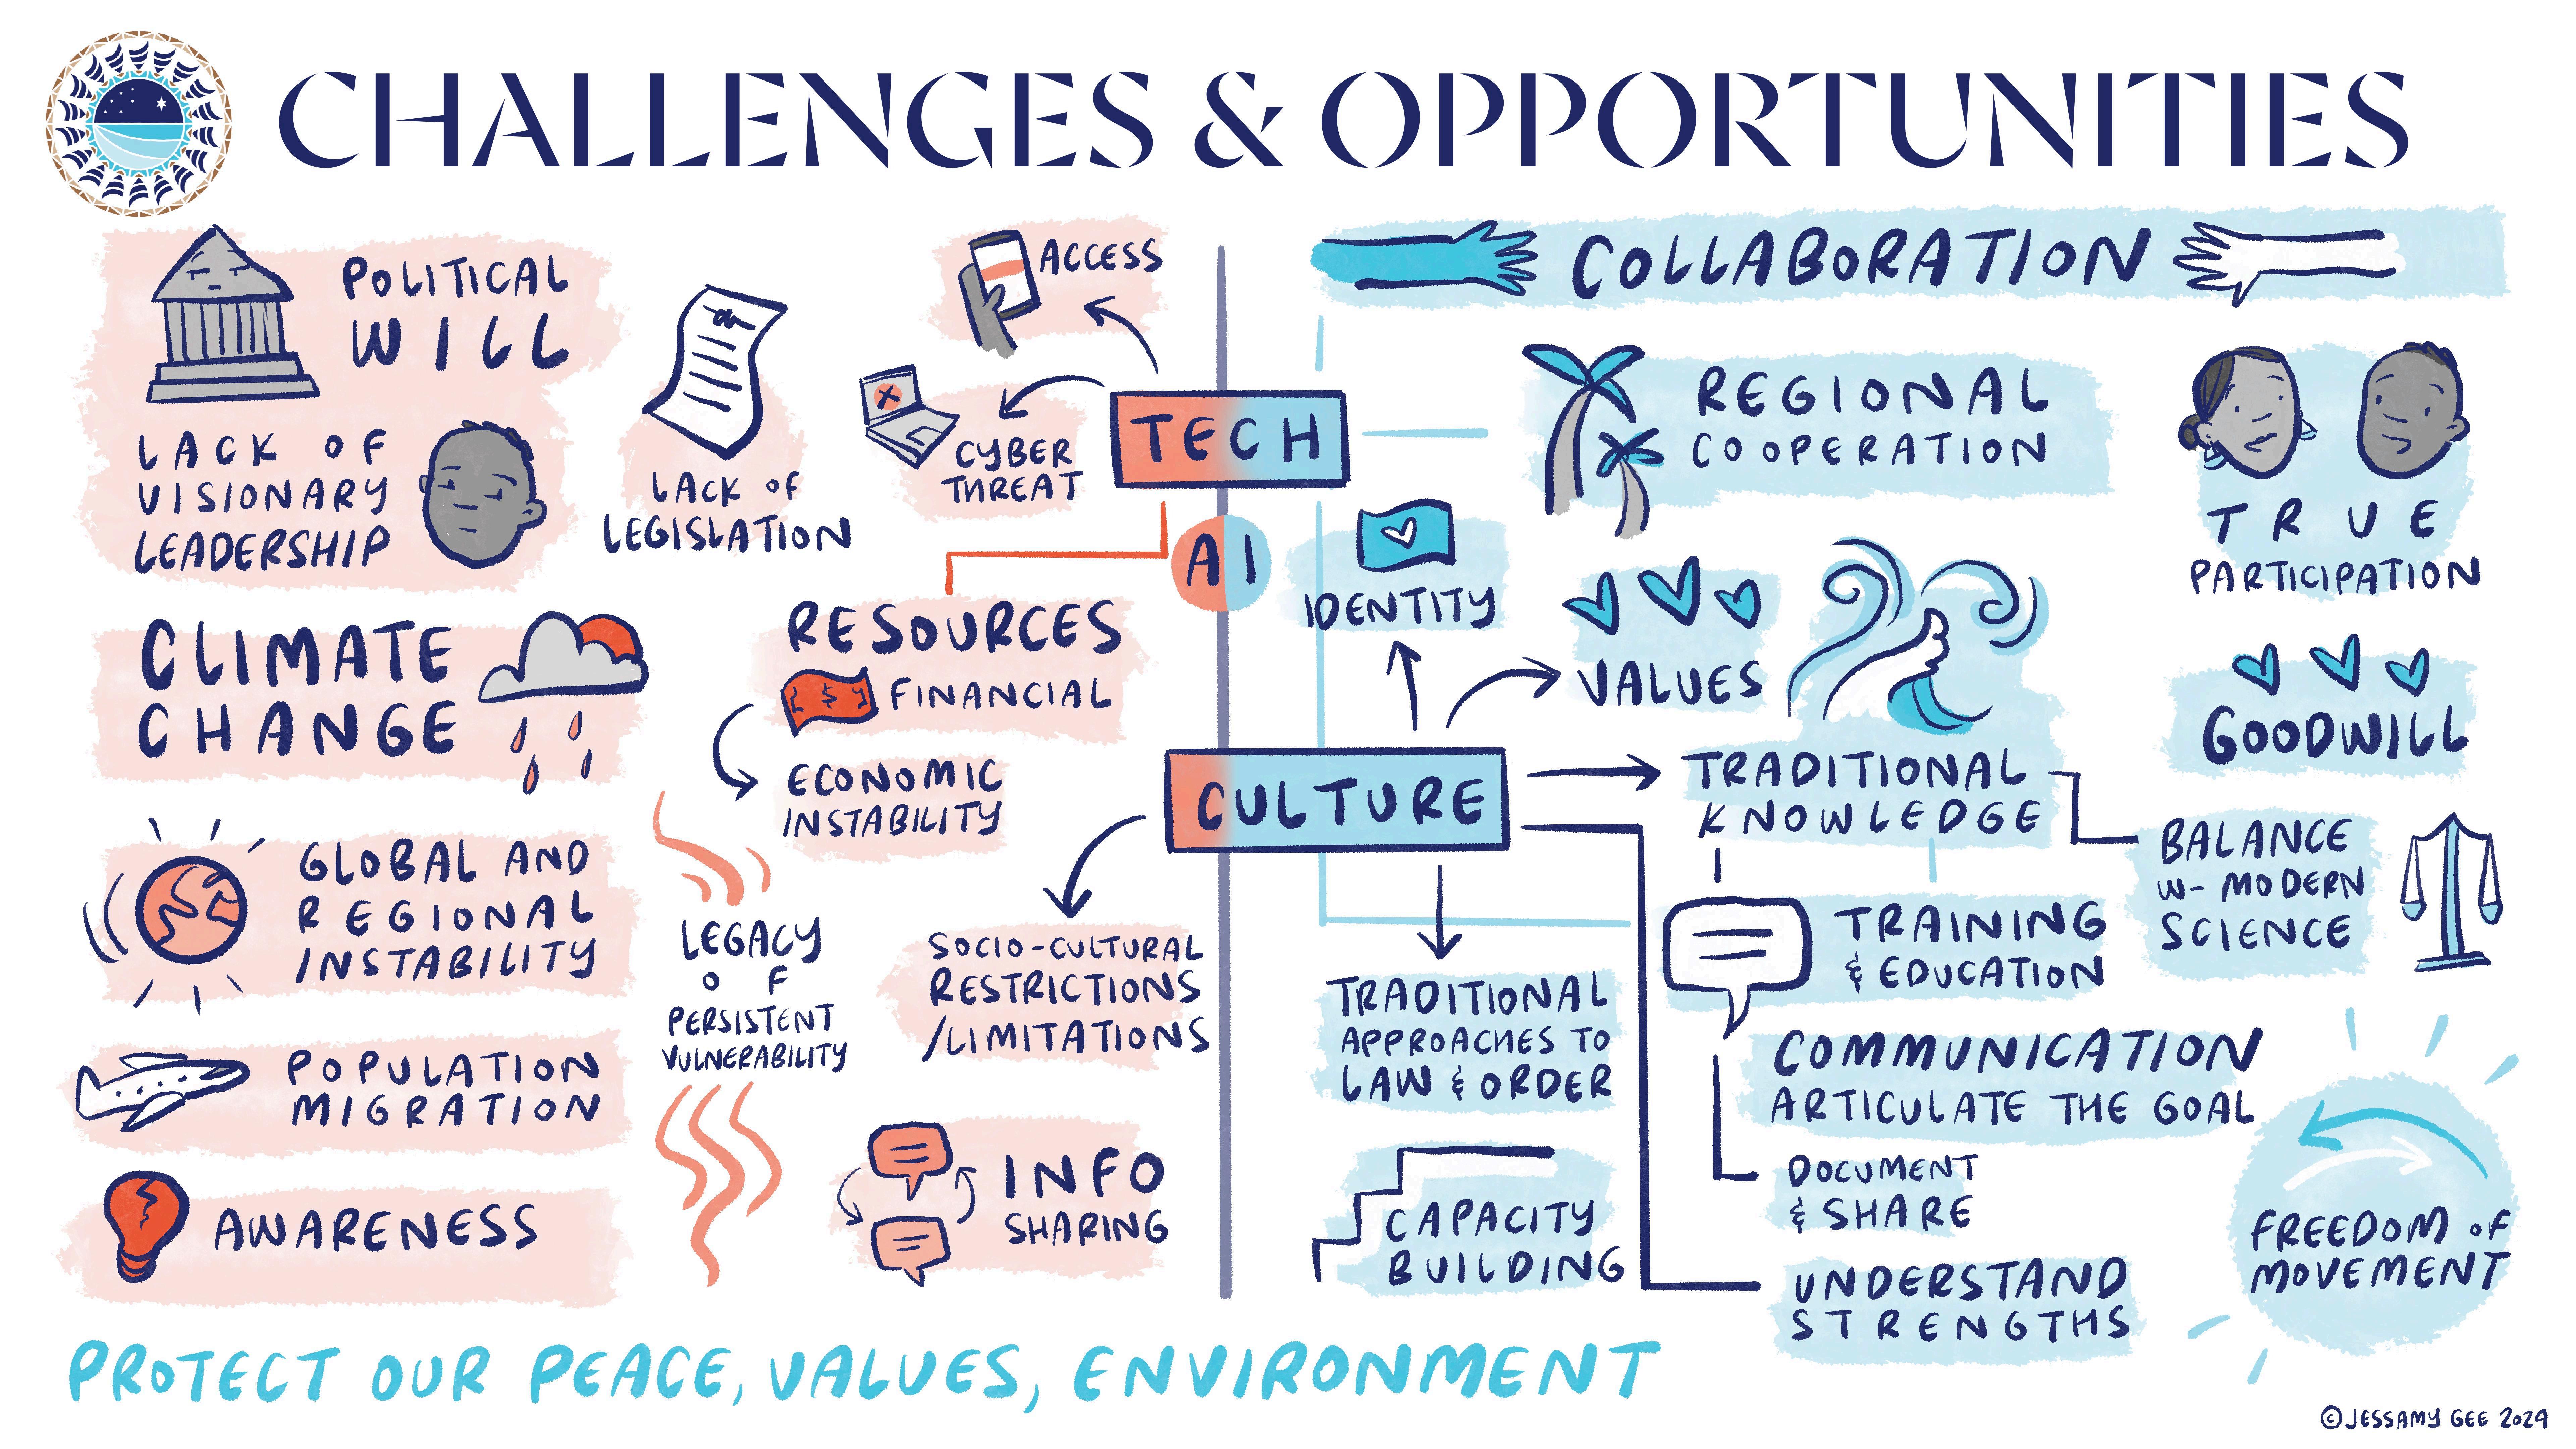 CHALLENGES & OPPORTUNITIES
POLITICAL
WILL
LACK OF
VISIONARY
LEADERSHIP
LACK OF
LEGISLATION
ACCESS
CYBER
THREAT
TECH
AI
CLIMATE
CHANGE
RESOURCES
$ FINANCIAL
ECONOMIC
INSTABILITY
GLOBAL AND
REGIONAL
INSTABILITY
LEGACY
OF
PERSISTENT
VULNERABILITY
CULTURE
SOCIO-CULTURAL
RESTRICTIONS
/LIMITATIONS
POPULATION
MIGRATION
AWARENESS
INFO
SHARING
COLLABORATION
REGIONAL
COOPERATION
TRUE
PARTICIPATION
IDENTITY
VALUES
GOODWILL
TRADITIONAL
KNOWLEDGE
BALANCE
W- MODERN
SCIENCE
TRAINING
& EDUCATION
TRADITIONAL
APPROACHES TO
LAW & ORDER
COMMUNICATION
ARTICULATE THE GOAL
DOCUMENT
& SHARE
CAPACITY
BUILDING
UNDERSTAND
STRENGTHS
FREEDOM OF
MOVEMENT
PROTECT OUR PEACE, VALUES, ENVIRONMENT
©JESSAMY GEE 2024